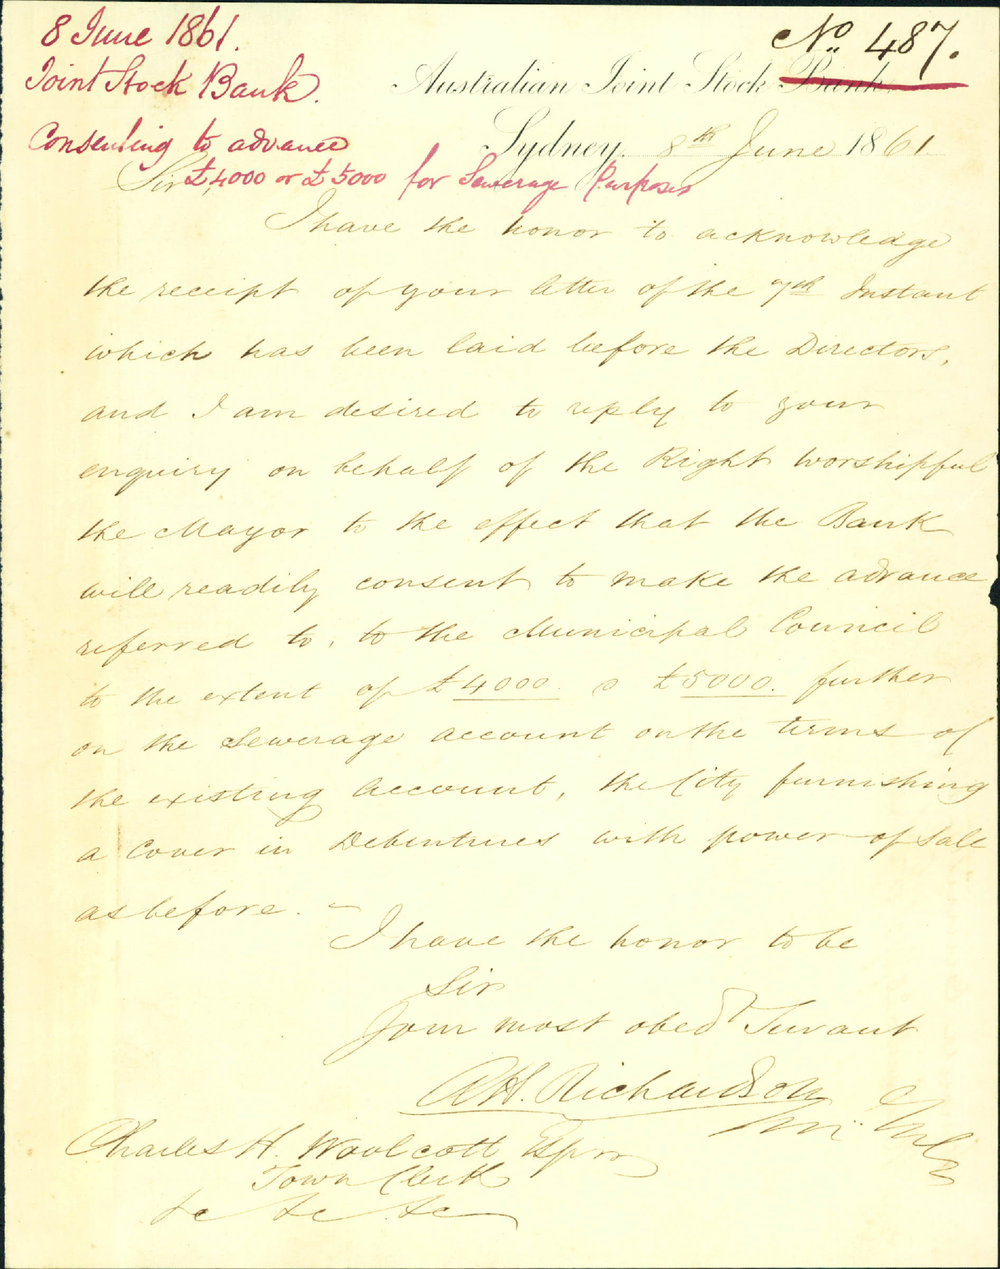 8 June 1861.
Joint Stock Bank.
Consenting to advance
£4000 or £5000 for Sewerage Purposes
No. 487.
Australian Joint Stock Bank
Sydney 8th June 1861
Sir,
I have the honor to acknowledge
the receipt of your letter of the 7th Instant
which has been laid before the Directors,
and I am desired to reply to your
enquiry on behalf of the Right Worshipful
the Mayor to the effect that the Bank
will readily consent to make the advance
referred to, to the Municipal Council
to the extent of £4000 @ £5000. further
on the Sewerage Account on the terms of
the existing Account, the City furnishing
a Cover in Debentures with power of Sale
as before. –
I have the honor to be
Sir
Your most obedt Servant
A H. Richardson
Charles H. Woolcott Esqre
Town Clerk
&c &c &c